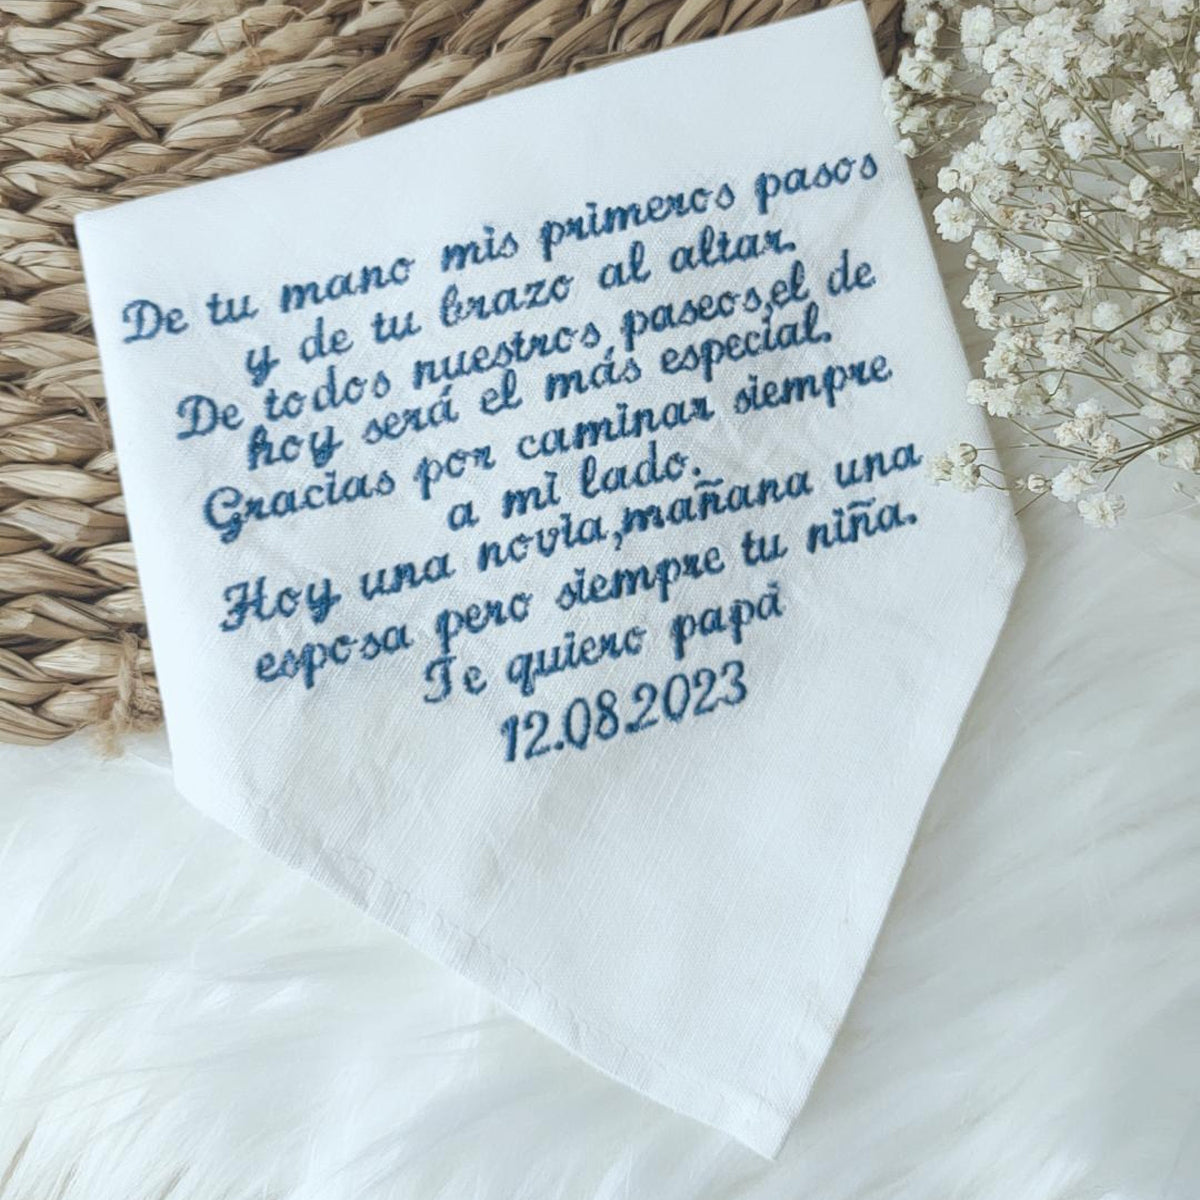 De tu mano mis primeros pasos
y de tu brazo al altar.
De todos nuestros paseos,el de
hoy será el más especial.
Gracias por caminar siempre
a mi lado.
Hoy una novia,mañana una
esposa pero siempre tu niña.
Te quiero papá
12.08.2023